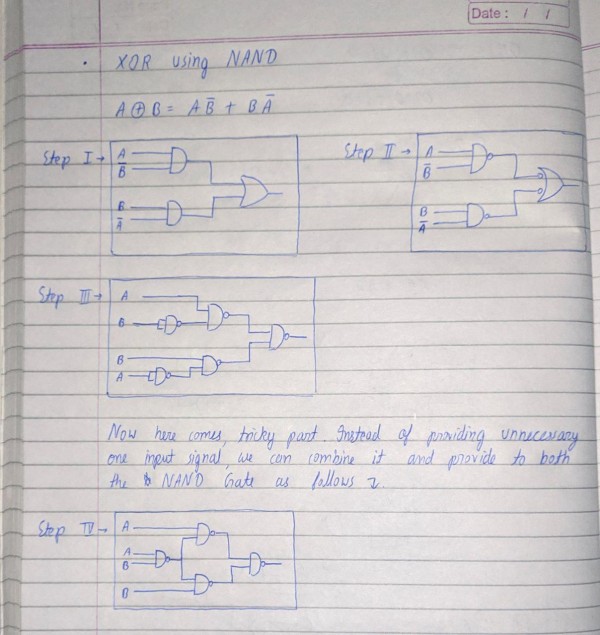 Date: / /
• XOR using NAND
A ⊕ B = A B̅ + B A̅
Step I →
A
B̅
B
A̅
Step II →
A
B̅
B
A̅
Step III →
A
B
B
A
Now here comes, tricky part. Instead of providing unnecessary
one input signal, we can combine it and provide to both
the NAND Gate as follows
Step IV →
A
A
B
B